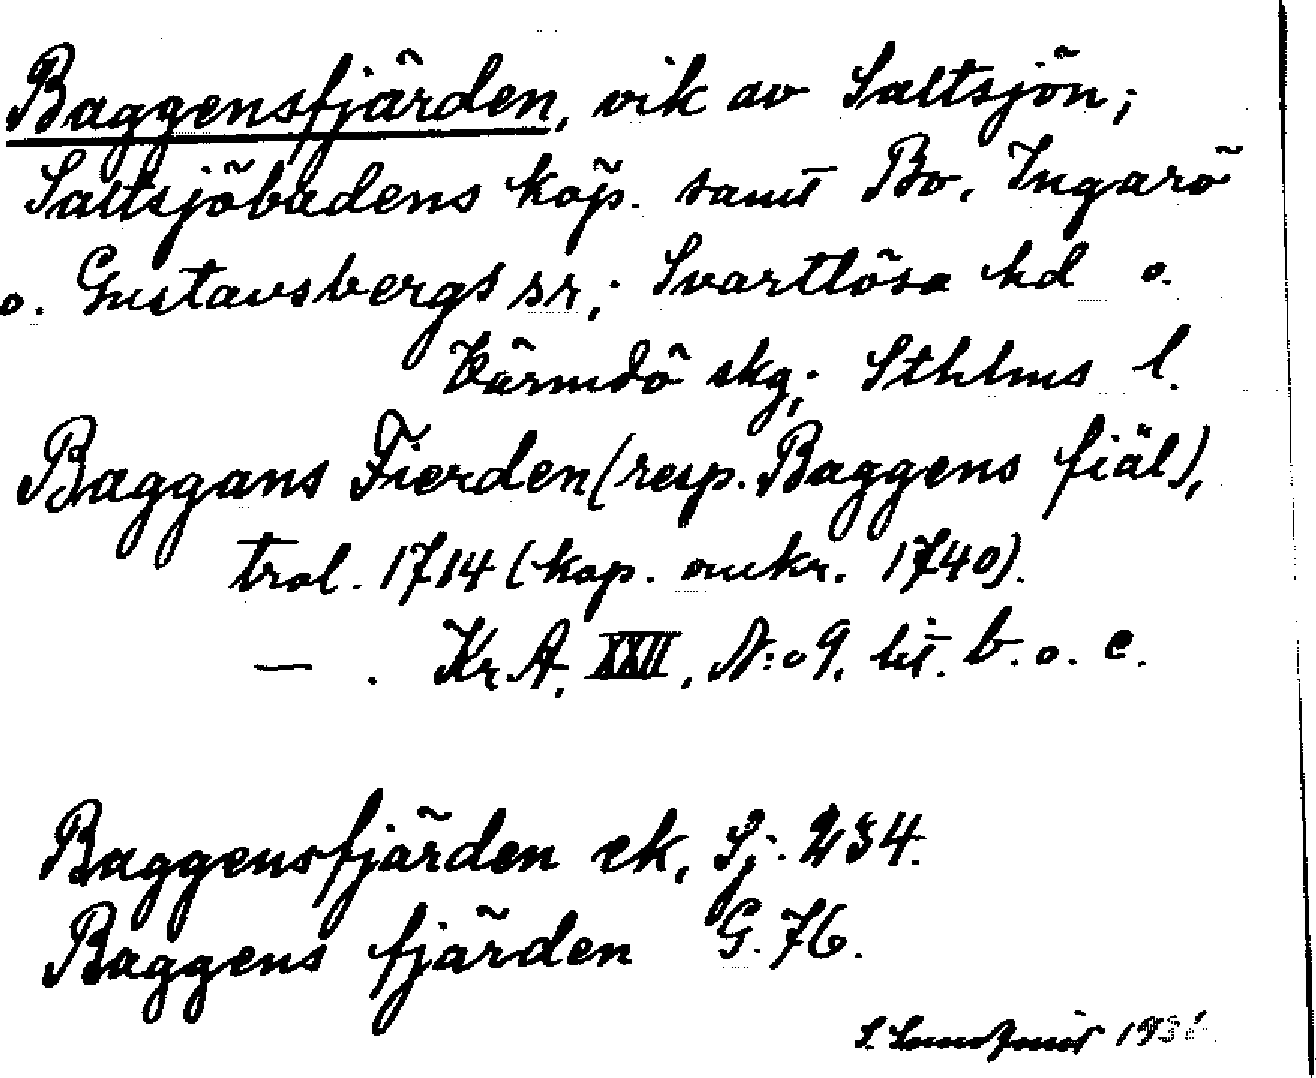 Baggensfjärden, vik av Saltsjön;
Saltsjöbadens köp. samt Bo, Ingarö
o. Gustavsbergs snr; Svartlösa hd o.
Värmdö skg; Sthlms l.
Baggans Fierden (resp. Baggens fiäl),
trol. 1714 (kop. omkr. 1740).
— . Kr.A. XXII, N:o 9, lit. b. o. c.
Baggensfjärden ek, Sj. 234.
Baggens fjärden G. 76.
S.